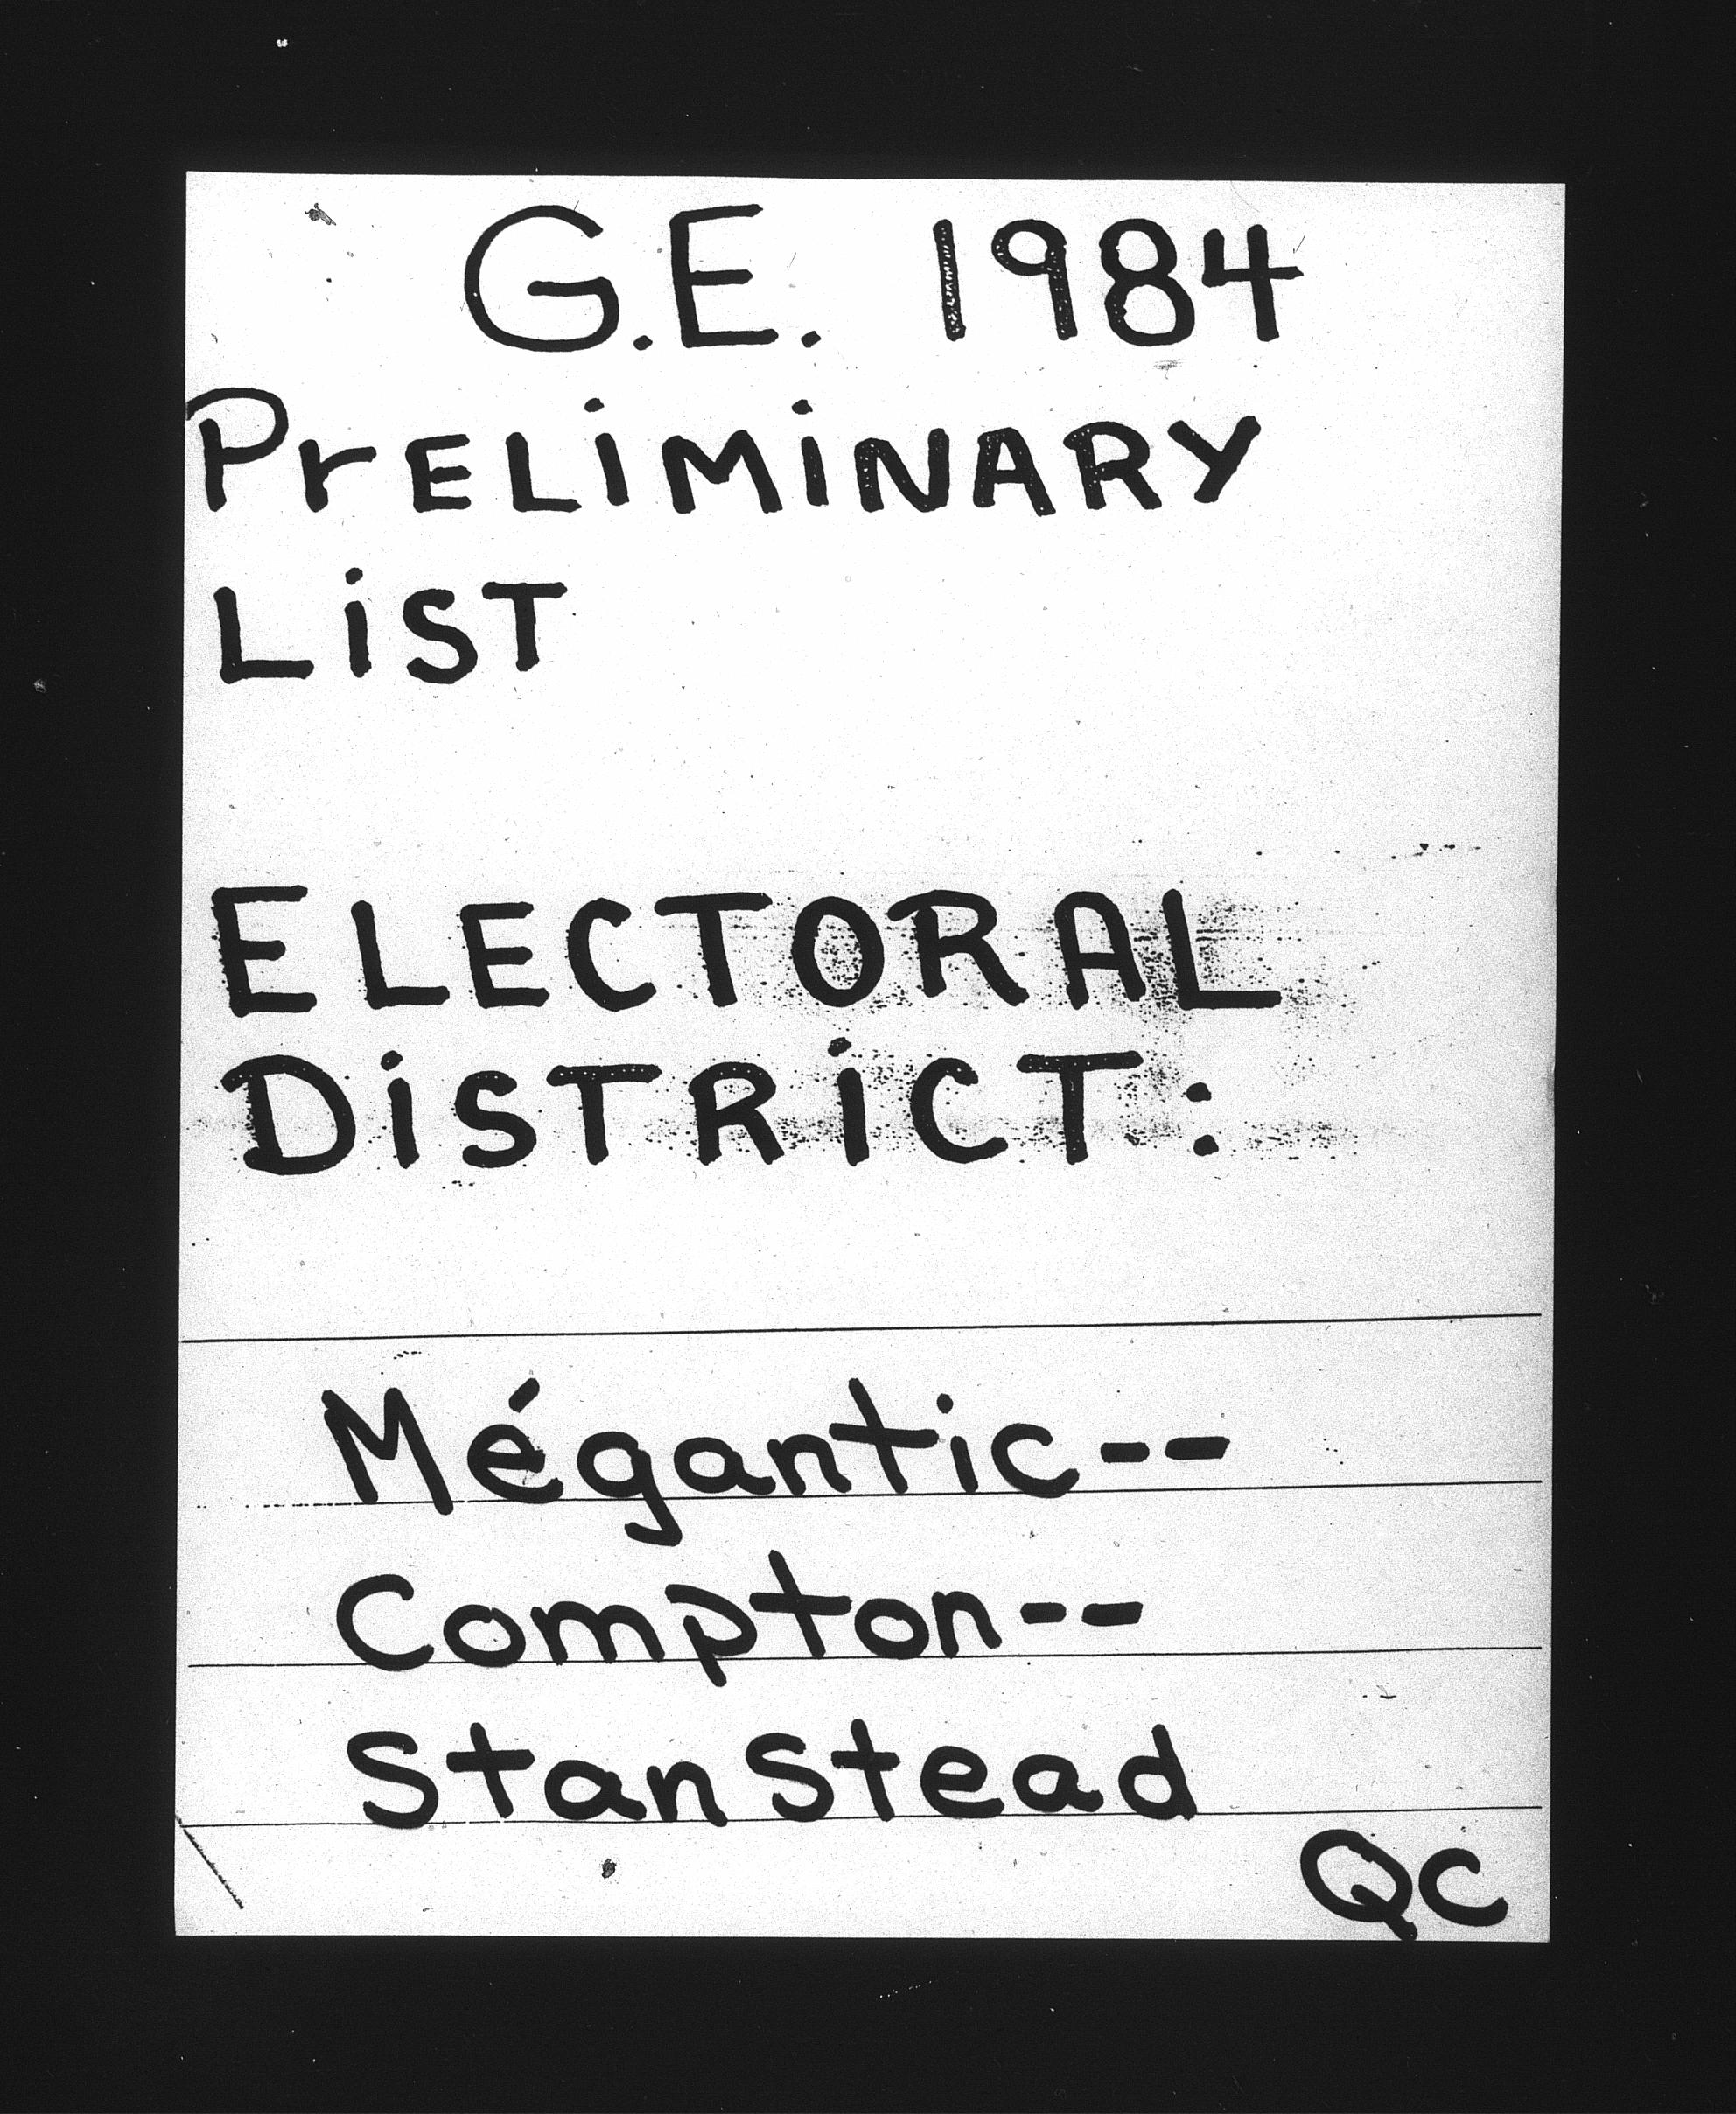 G.E. 1984
PrELiMiNARY
LiST
ELECTORAL
DiSTRiCT:
Mégantic--
Compton--
StanStead
QC